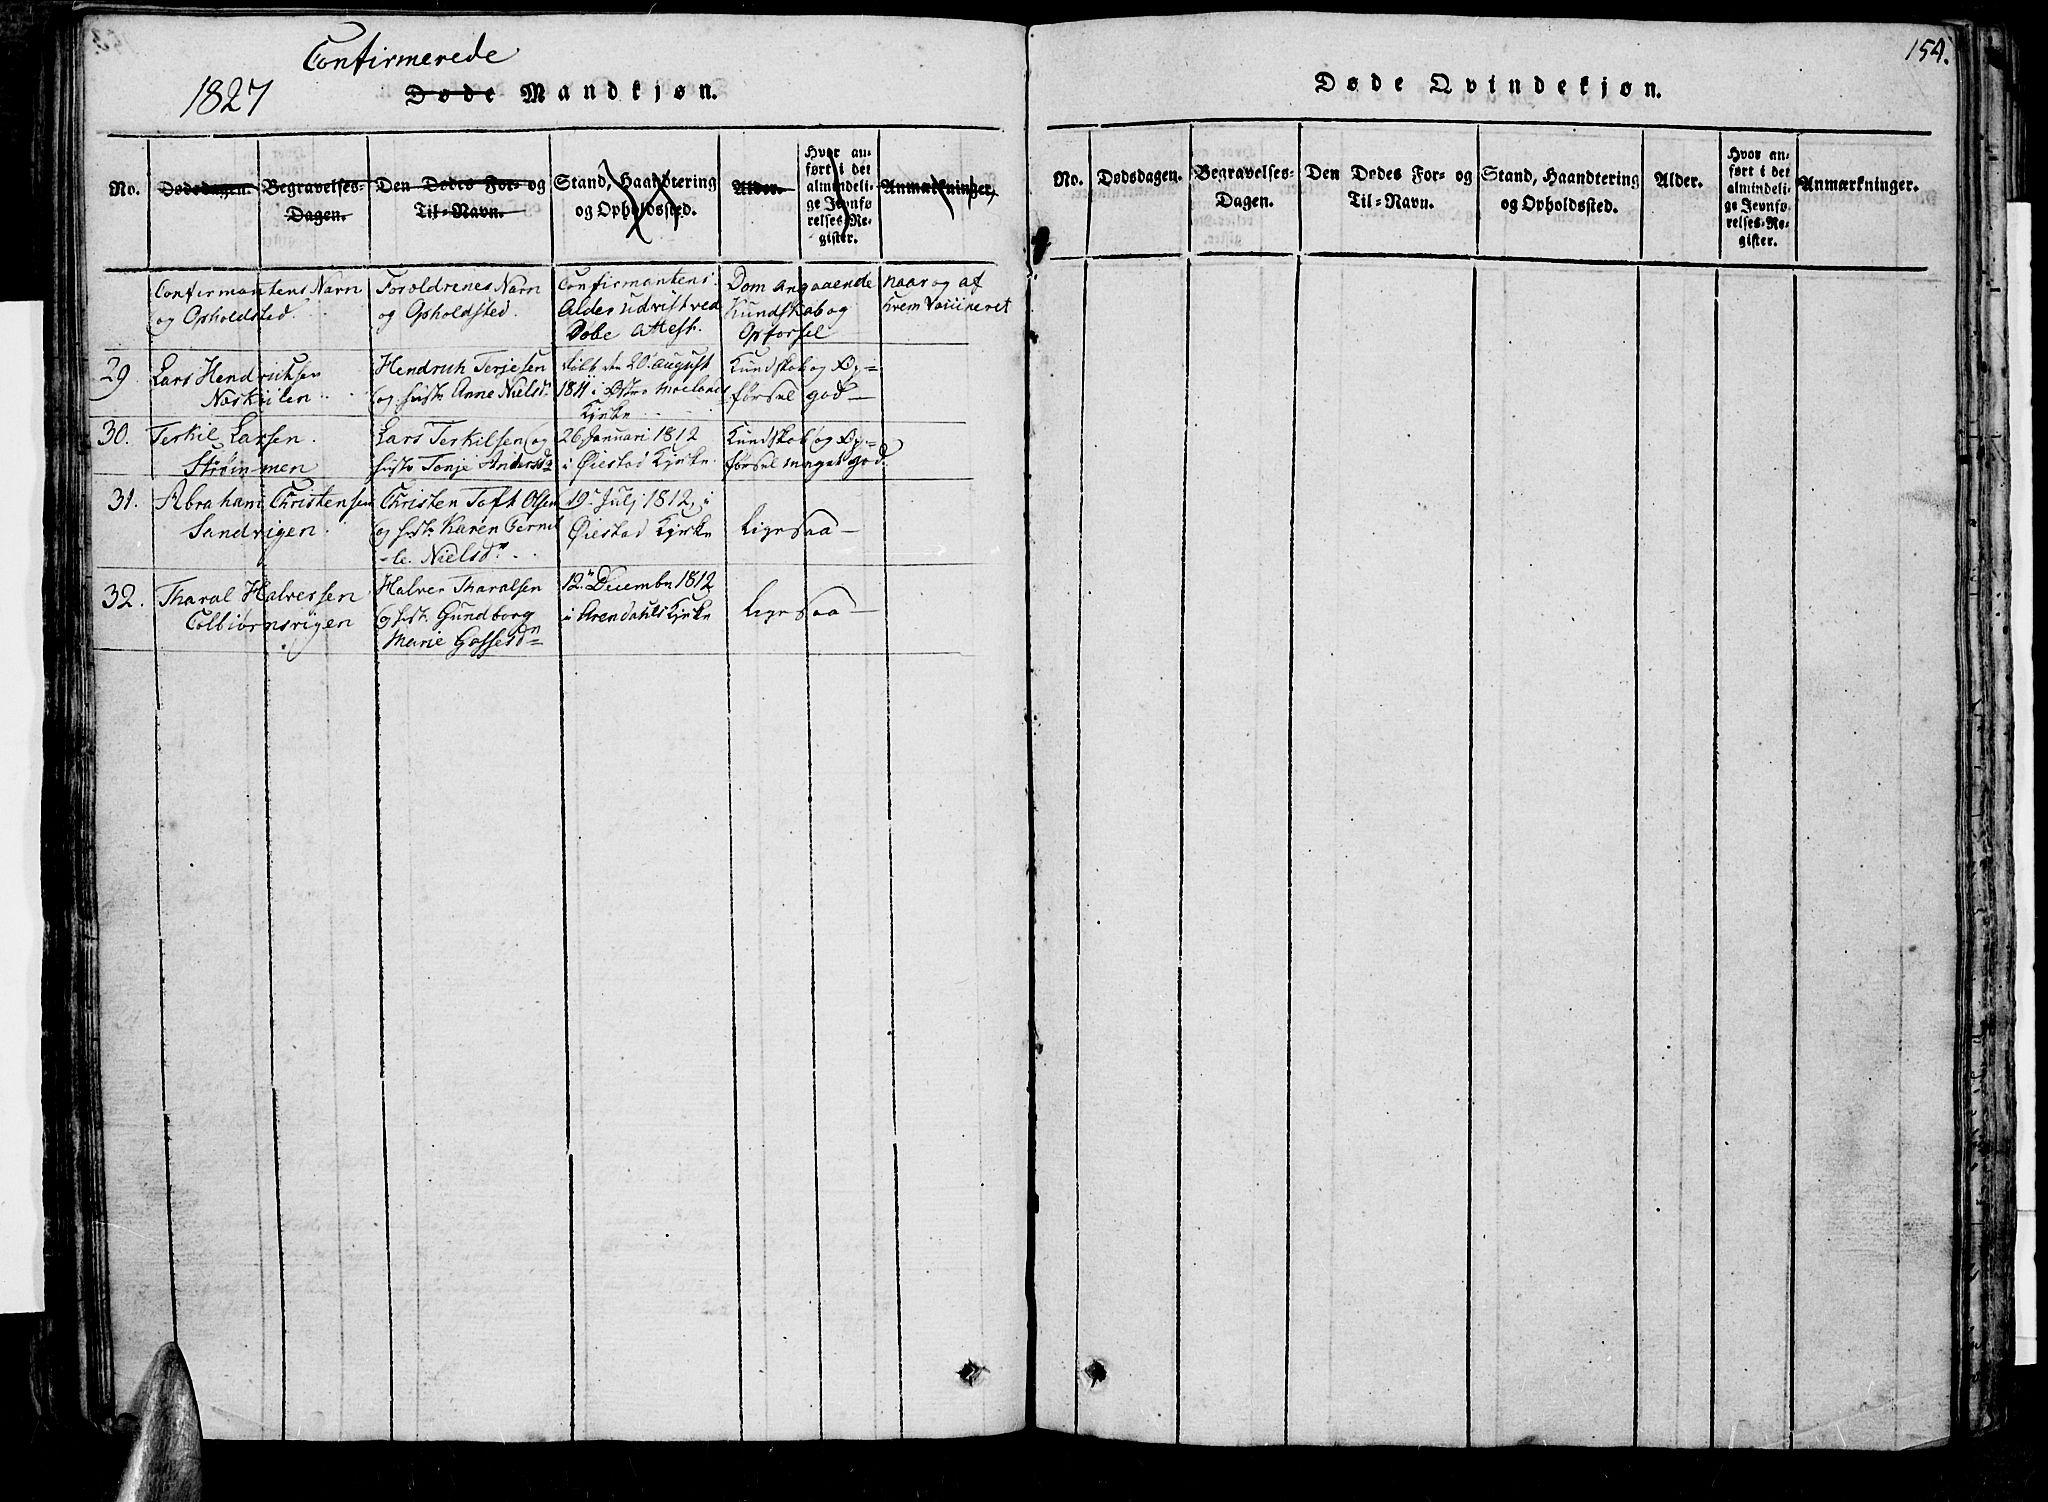 Confirmerede
1827
Døde Mandkjøn.
No.
Dødsdagen.
Begravelses-
Dagen.
Den Dødes For- og
Til-Navn.
Stand, Haandtering
og Opholdssted.
Alder.
Hvor an-
ført i det
almindeli-
ge Jevnfø-
relses-Re-
gister.
Anmærkninger.
Confirmantens Navn
og Opholdsted.
Foroldrenes Navn
og Opholdsted.
Confirmantens
Alder udvist ved
Dobe attest.
Dom angaaende
Kundskab og
Opforsel
naar og af
hvem Vaccineret
29
Lars Hendrichsen
Næskilen
Hendrich Terjesen
og hust: Anne Nielsdr
døbt den 20. august
1811 i Østre Moelands
Kjrke
Kundskab og Op-
førsel god —
30.
Terkil Larsen.
Strømmen
Lars Terkilsen og
hust: Tonje Andersd.
26 Januari 1812
i Øiestad Kjrke.
Kundskab og Op-
førsel meget god.
31.
Abraham Christensen
Sandvigen.
Christen Toft Olsen
og hust: Karen Pernil
-le. Nielsdr.
19. Julj 1812. i
Øiestad Kjrke
Ligesaa —
32.
Tharal Halversen
Colbiørnsvigen
Halver Tharalsen
og hust: Gundborg
Marie Gossesdn
12. Decembr 1812
i Arendahls Kjrke
Ligesaa —
154.
Døde Qvindekjøn.
No.
Dødsdagen.
Begravelses-
Dagen.
Den Dødes For- og
Til-Navn.
Stand, Haandtering
og Opholdssted.
Alder.
Hvor an-
ført i det
almindeli-
ge Jevnfø-
relses-Re-
gister.
Anmærkninger.